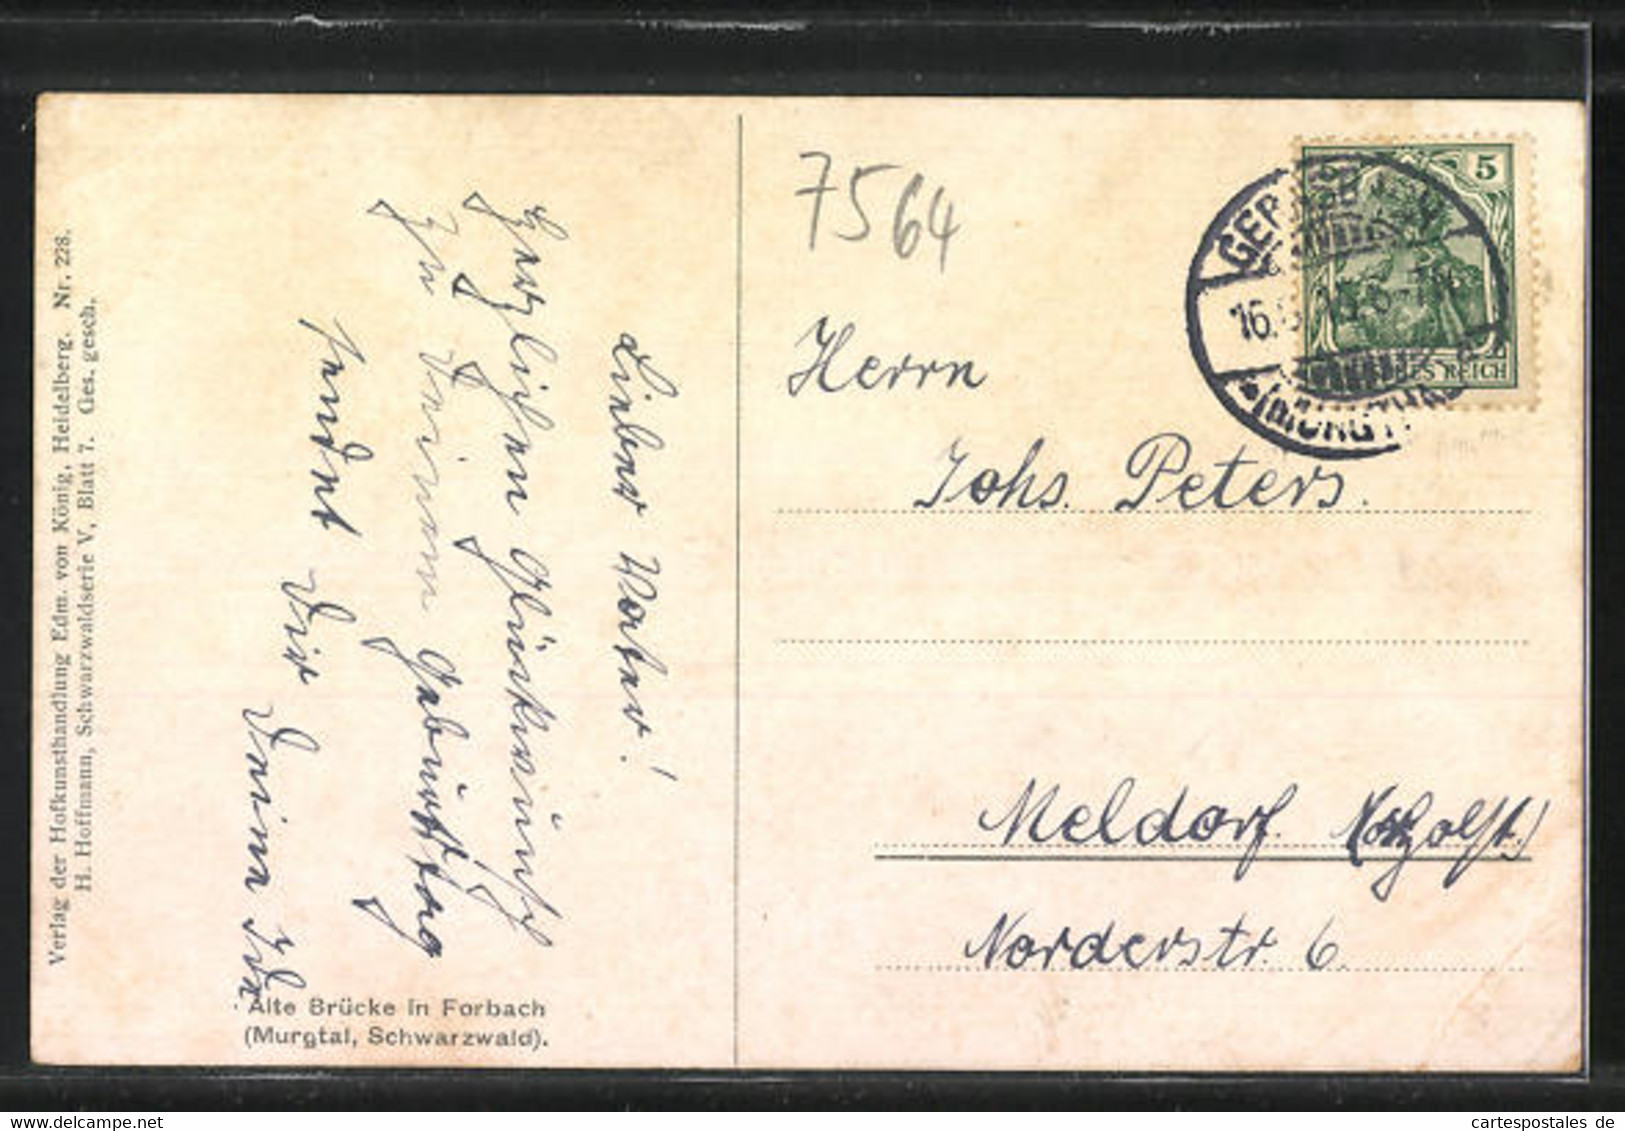 Verlag der Hofkunsthandlung Edm. von König, Heidelberg. Nr. 228.
H. Hoffmann, Schwarzwaldserie V, Blatt 7. Ges. gesch.
Lieber Vater!
Herzlichen Glückwunsch
zu Deinem Geburtstag
sendet Dir Deine
Alte Brücke in Forbach
(Murgtal, Schwarzwald).
7564
5
REICH
16.
Herrn
Johs. Peters.
Meldorf. (Holst.)
Norderstr. 6.
cartespostales de